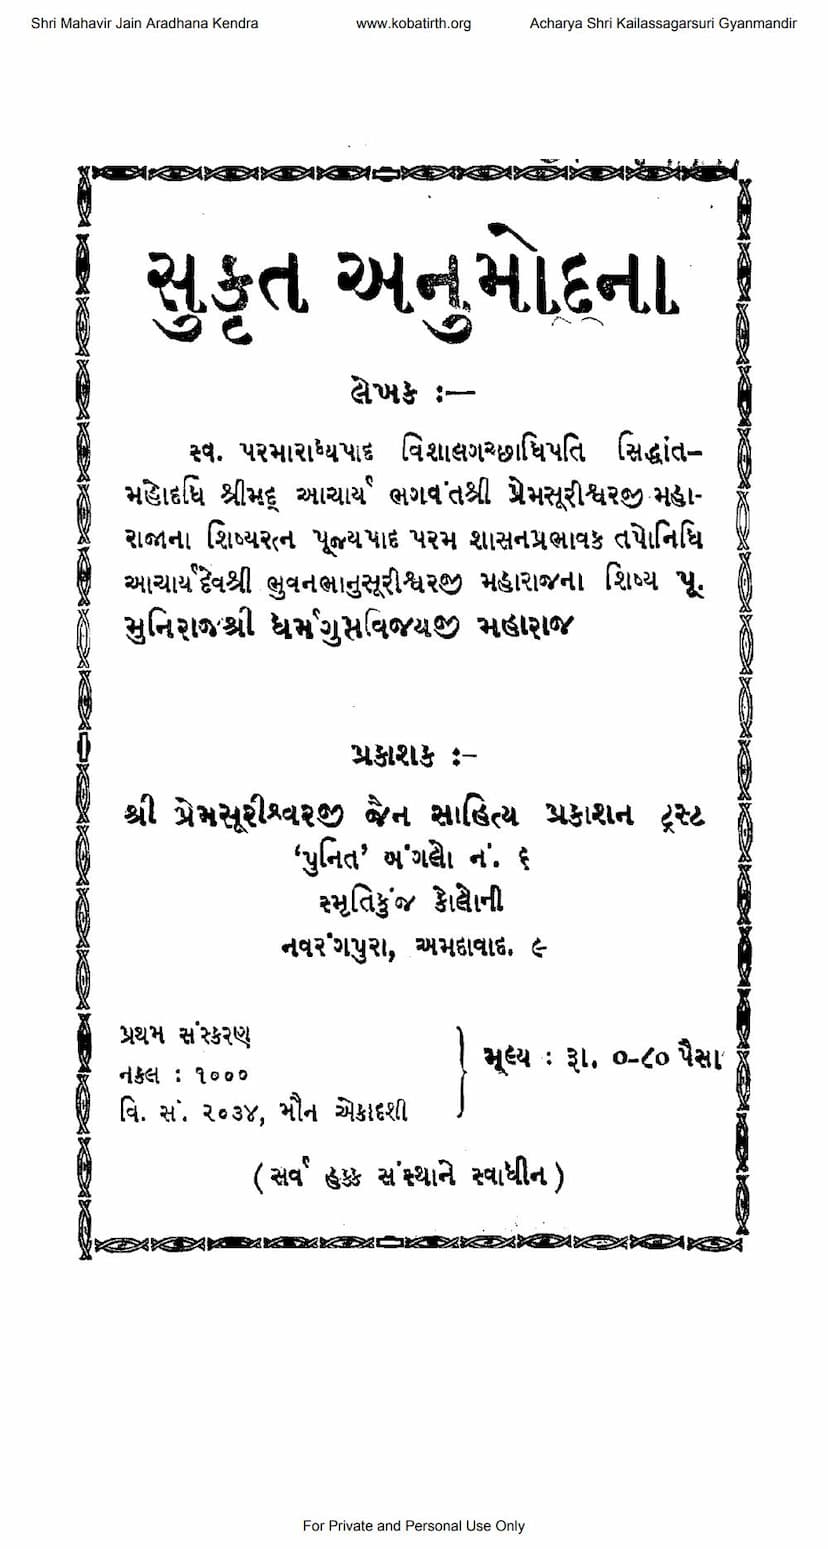 Shri Mahavir Jain Aradhana Kendra www.kobatirth.org Acharya Shri Kailassagarsuri Gyanmandir
સુકૃત અનુમોદના
લેખક :—
સ્વ. પરમારાધ્યપાદ વિશાલગચ્છાધિપતિ સિદ્ધાંત-
મહોદધિ શ્રીમદ્ આચાર્ય ભગવંતશ્રી પ્રેમસૂરીશ્વરજી મહા-
રાજાના શિષ્યરત્ન પૂજ્યપાદ પરમ શાસનપ્રભાવક તપોનિધિ
આચાર્યદેવશ્રી ભુવનભાનુસૂરીશ્વરજી મહારાજના શિષ્ય પૂ.
મુનિરાજશ્રી ધર્મગુપ્તવિજયજી મહારાજ
પ્રકાશક :-
શ્રી પ્રેમસૂરીશ્વરજી જૈન સાહિત્ય પ્રકાશન ટ્રસ્ટ
‘પુનિત’ બંગલો નં. ૬
સ્મૃતિકુંજ કોલોની
નવરંગપુરા, અમદાવાદ. ૯
પ્રથમ સંસ્કરણ
નકલ : ૧૦૦૦
વિ. સં. ૨૦૩૪, મૌન એકાદશી
મૂલ્ય : રૂા. ૦-૮૦ પૈસા
(સર્વ હક્ક સંસ્થાને સ્વાધીન)
For Private and Personal Use Only